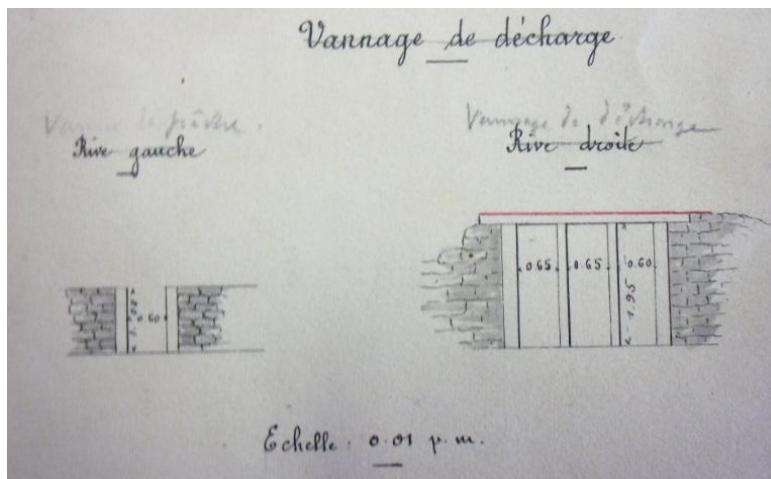 Vannage de décharge
Vanne de pêche.
Rive gauche
Vannage de décharge
Rive droite
0.60
0.65 0.65 0.60
1.95
Echelle : 0.01 p. m.